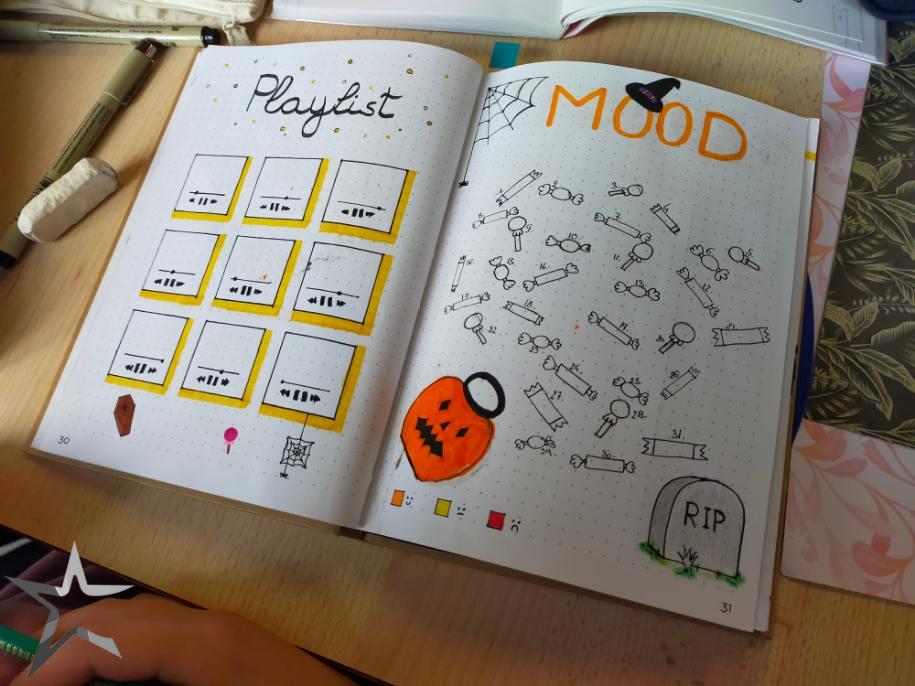 Playlist
30
MOOD
1.
2.
3.
4.
5.
6.
7.
8.
9.
10.
11.
12.
13.
14.
15.
16.
17.
18.
19.
20.
21.
22.
23.
24.
25.
26.
27.
28.
29.
30.
31.
RIP
31